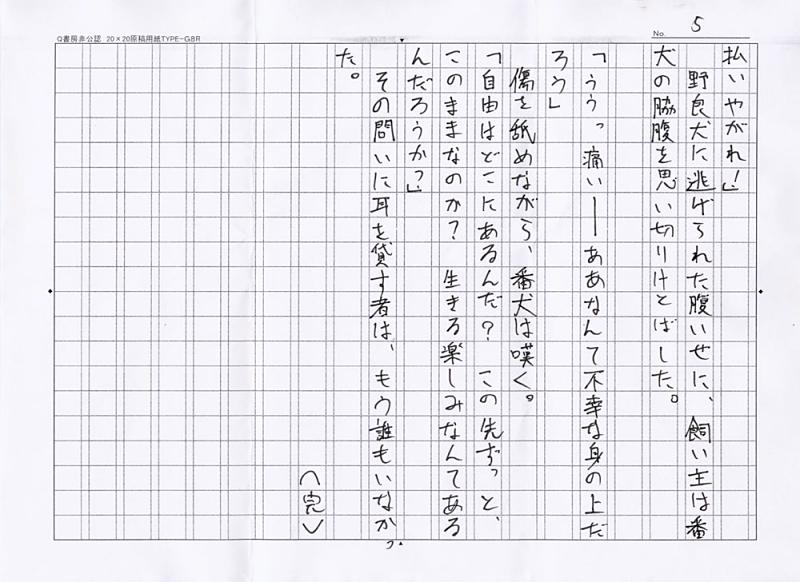 Q書房非公認 20×20原稿用紙TYPE-GBR
No. 5
払いやがれ!」
野良犬に逃げられた腹いせに、飼い主は番
犬の脇腹を思い切りけとばした。
「うぅっ痛い――ああなんて不幸な身の上だ
ろう」
傷を舐めながら、番犬は嘆く。
「自由はどこにあるんだ? この先ずっと、
このままなのか? 生きる楽しみなんてある
んだろうか?」
その問いに耳を貸す者は、もう誰もいなかっ
た。
(完)